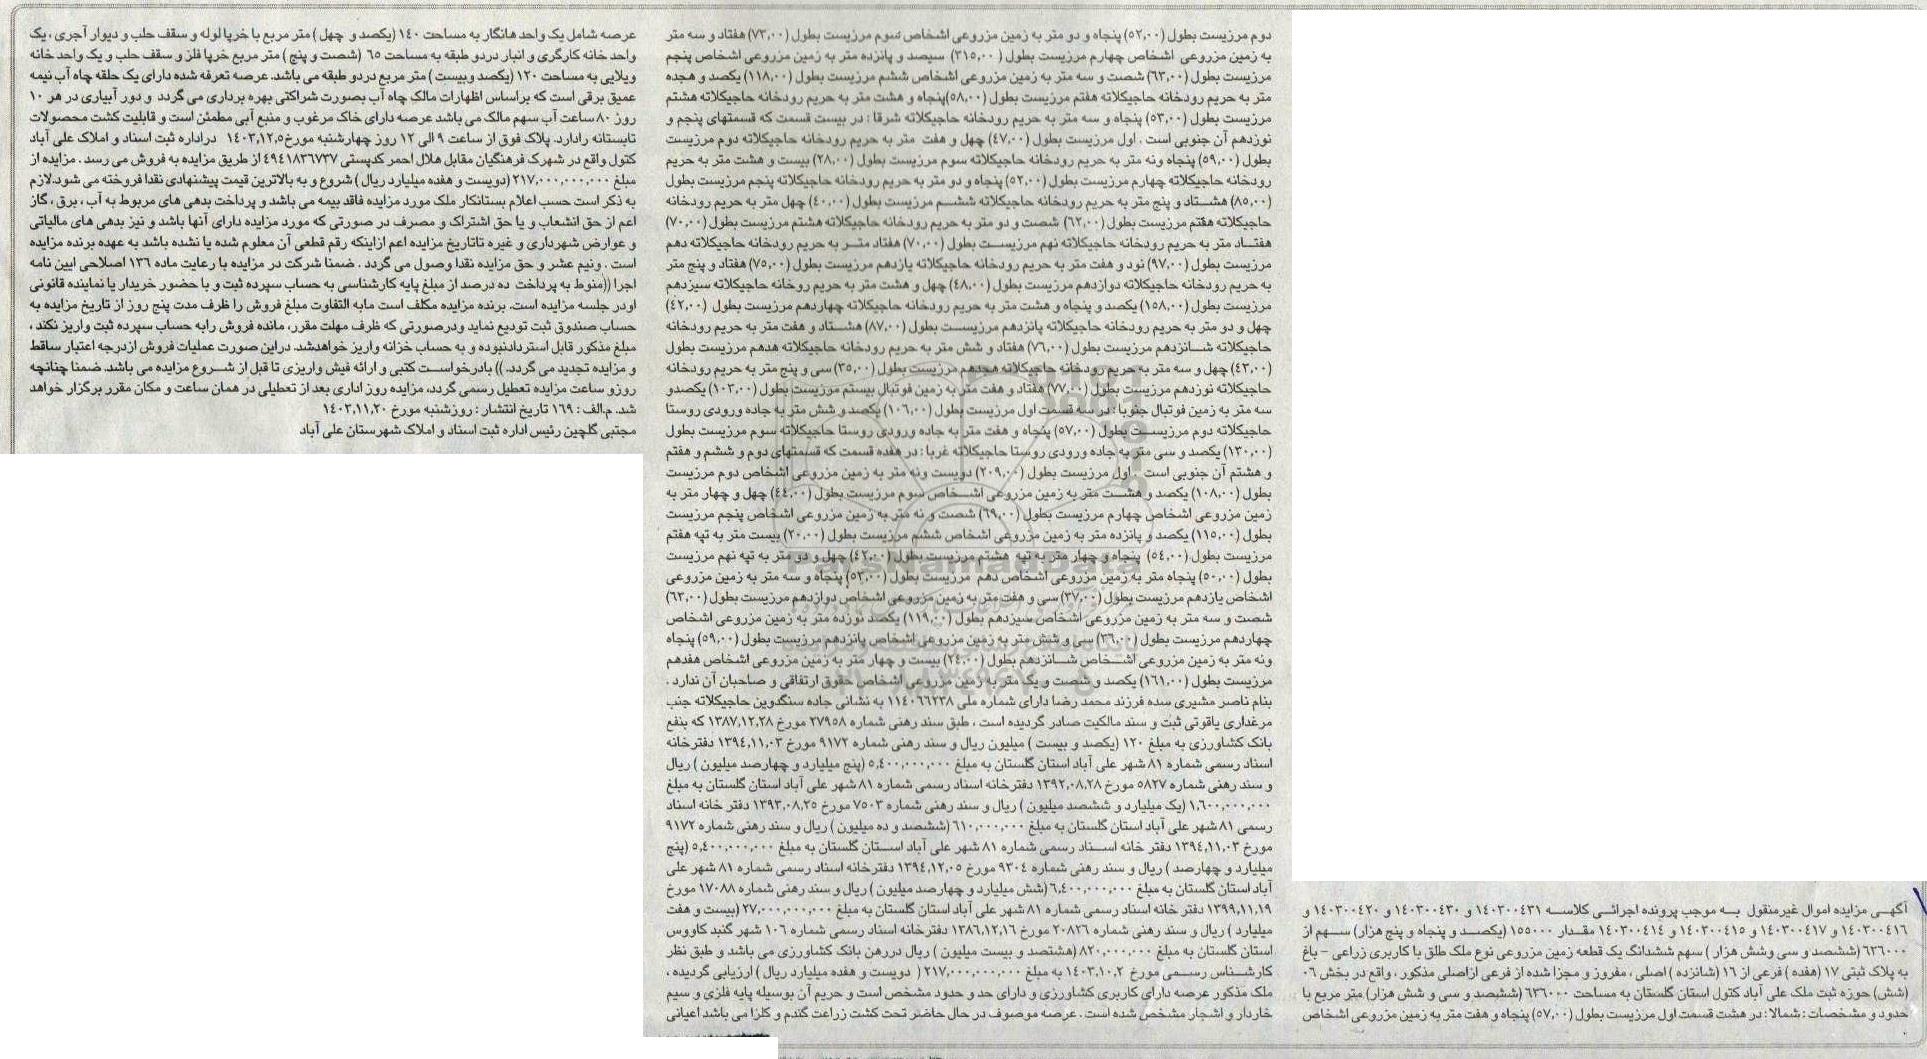 آگهـی مزایده اموال غیرمنقول  بـه موجب پرونده اجرائـی کلاسـه ۱۴۰۳۰۰۴۳۱ و ۱۴۰۳۰۰۴۳۰ و ۱۴۰۳۰۰۴۲۰ و
۱۴۰۳۰۰۴۱۶ و ۱۴۰۳۰۰۴۱۷ و ۱۴۰۳۰۰۴۱۵ و ۱۴۰۳۰۰۴۱۴ مقـدار ۱۵۵۰۰۰ (یکصـد و پنجاه و پنج هزار) سـهم از
۶۳۶۰۰۰ (ششصـد و سی وشش هزار ) سهم ششدانگ یک قطعه زمین مزروعی نوع ملک طلق با کاربری زراعی – باغ
به پلاک ثبتی ۱۷ (هفده ) فرعی از ۱۶ (شانزده ) اصلی ، مفروز و مجزا شده از فرعی ازاصلی مذکور ، واقع در بخش ۰۶
(شش) حوزه ثبت ملک علی آباد کتول استان گلستان به مساحت ۶۳۶۰۰۰ (ششصد و سی و شش هزار) متر مربع با
حدود و مشخصات : شمالا : در هشت قسمت اول مرزیست بطول (۵۷,۰۰) پنجاه و هفت متر به زمین مزروعی اشخاص
دوم مرزیست بطول (۵۲,۰۰) پنجاه و دو متر به زمین مزروعی اشخاص سوم مرزیست بطول (۷۳,۰۰) هفتاد و سه متر
به زمین مزروعی  اشخاص چهارم مرزیست بطول ( ۳۱۵,۰۰)  سیصد و پانزده متر به زمین مزروعی اشخاص پنجم
مرزیست بطول (۶۳,۰۰) شصت و سه متر به زمین مزروعی اشخاص ششم مرزیست بطول (۱۱۸,۰۰) یکصد و هجده
متر به حریم رودخانه حاجیکلاته هفتم مرزیست بطول (۵۸,۰۰)پنجاه و هشت متر به حریم رودخانه حاجیکلاته هشتم
مرزیست بطول (۵۳,۰۰) پنجاه و سه متر به حریم رودخانه حاجیکلاته شرقا : در بیست قسمت که قسمتهای پنجم و
نوزدهم آن جنوبی است . اول مرزیست بطول (۴۷,۰۰) چهل و هفت  متر به حریم رودخانه حاجیکلاته دوم مرزیست
بطول (۵۹,۰۰) پنجاه ونه متر به حریم رودخانه حاجیکلاته سوم مرزیست بطول (۲۸,۰۰) بیست و هشت متر به حریم
رودخانه حاجیکلاته چهارم مرزیست بطول (۵۲,۰۰) پنجاه و دو متر به حریم رودخانه حاجیکلاته پنجم مرزیست بطول
(۸۵,۰۰) هشتـاد و پنج متر به حریم رودخانه حاجیکلاته ششـم مرزیست بطول (۴۰,۰۰) چهل متر به حریم رودخانه
حاجیکلاته هفتم مرزیست بطول (۶۲,۰۰)  شصت و دو متر به حریم رودخانه حاجیکلاته هشتم مرزیست بطول (۷۰,۰۰)
هفتـاد متر به حریم رودخانه حاجیکلاته نهم مرزیسـت بطول (۷۰,۰۰) هفتاد متـر به حریم رودخانه حاجیکلاته دهم
مرزیست بطول (۹۷,۰۰) نود و هفت متر به حریم رودخانه حاجیکلاته یازدهم مرزیست بطول (۷۵,۰۰) هفتاد و پنج متر
به حریم رودخانه حاجیکلاته دوازدهم مرزیست بطول (۴۸,۰۰) چهل و هشت متر به حریم روخانه حاجیکلاته سیزدهم
مرزیست بطول (۱۵۸,۰۰) یکصد و پنجاه و هشت متر به حریم رودخانه حاجیکلاته چهاردهم مرزیست بطول  (۴۲,۰۰)
چهل و دو متر به حریم رودخانه حاجیکلاته پانزدهم مرزیسـت بطول (۸۷,۰۰) هشـتاد و هفت متر به حریم رودخانه
حاجیکلاته شـانزدهم مرزیست بطول (۷۶,۰۰) هفتاد و شش متر به حریم رودخانه حاجیکلاته هدهم مرزیست بطول
(۴۳,۰۰) چهل و سه متر به حریم رودخانه حاجیکلاته هجدهم مرزیست بطول (۳۵,۰۰) سی و پنج متر به حریم رودخانه
حاجیکلاته نوزدهم مرزیست بطول (۷۷,۰۰) هفتاد و هفت متر به زمین فوتبال بیستم مرزیست بطول (۱۰۳,۰۰) یکصدو
سه متر به زمین فوتبال جنوبا : در سه قسمت اول مرزیست بطول (۱۰۶,۰۰) یکصد و شش متر به جاده ورودی روستا
حاجیکلاته دوم مرزیسـت بطول (۵۷,۰۰) پنجاه و هفت متر به جاده ورودی روستا حاجیکلاته سوم مرزیست بطول
(۱۳۰,۰۰) یکصد و سی متر به جاده ورودی روستا حاجیکلاته غربا : در هفده قسمت که قسمتهای دوم و ششم و هفتم
و هشتم آن جنوبی است . اول مرزیست بطول (۲۰۹,۰۰) دویست ونه متر به زمین مزروعی اشخاص دوم مرزیست
بطول (۱۰۸,۰۰) یکصد و هشـت متر به زمین مزروعی اشـخاص سوم مرزیست بطول (۴۴,۰۰) چهل و چهار متر به
زمین مزروعی اشخاص چهارم مرزیست بطول (۶۹,۰۰) شصت و نه متر به زمین مزروعی اشخاص پنجم مرزیست
بطول (۱۱۵,۰۰) یکصد و پانزده متر به زمین مزروعی اشخاص ششم مرزیست بطول (۲۰,۰۰) بیست متر به تپه هفتم
مرزیست بطول (۵۴,۰۰)  پنجاه و چهار متر به تپه  هشتم مرزیست بطول (۴۲,۰۰) چهل و دو متر به تپه نهم مرزیست
بطول (۵۰,۰۰) پنجاه متر به زمین مزروعی اشخاص دهم  مرزیست بطول (۵۳,۰۰) پنجاه و سه متر به زمین مزروعی
اشخاص یازدهم مرزیست بطول (۳۷,۰۰) سی و هفت متر به زمین مزروعی اشخاص دوازدهم مرزیست بطول (۶۳,۰۰)
شصت و سه متر به زمین مزروعی اشخاص سیزدهم بطول (۱۱۹,۰۰) یکصد نوزده متر به زمین مزروعی اشخاص
چهاردهم مرزیست بطول (۳۶,۰۰) سی و شش متر به زمین مزروعی اشخاص پانزدهم مرزیست بطول (۵۹,۰۰) پنجاه
ونه متر به زمین مزروعی اشـخاص شـانزدهم بطول (۲۴,۰۰) بیست و چهار متر به زمین مزروعی اشخاص هفدهم
مرزیست بطول (۱۶۱,۰۰) یکصد و شصت و یک متر به زمین مزروعی اشخاص حقوق ارتفاقی و صاحبان آن ندارد .
بنام ناصر مشیری سده فرزند محمد رضا دارای شماره ملی ۱۱۴۰۶۶۲۳۸ به نشانی جاده سنگدوین حاجیکلاته جنب
مرغداری یاقوتی ثبت و سند مالکیت صادر گردیده است ، طبق سند رهنی شماره ۲۷۹۵۸ مورخ ۱۳۸۷,۱۲,۲۸ که بنفع
بانک کشاورزی به مبلغ ۱۲۰ (یکصد و بیست ) میلیون ریال و سند رهنی شماره ۹۱۷۲ مورخ ۱۳۹۴,۱۱,۰۳ دفترخانه
اسناد رسمی شماره ۸۱ شهر علی آباد استان گلستان به مبلغ ۵,۴۰۰,۰۰۰,۰۰۰ (پنج میلیارد و چهارصد میلیون ) ریال
و سند رهنی شماره ۵۸۲۷ مورخ ۱۳۹۲,۰۸,۲۸ دفترخانه اسناد رسمی شماره ۸۱ شهر علی آباد استان گلستان به مبلغ
۱,۶۰۰,۰۰۰,۰۰۰ (یک میلیارد و ششصد میلیون ) ریال و سند رهنی شماره ۷۵۰۳ مورخ ۱۳۹۳,۰۸,۲۵ دفتر خانه اسناد
رسمی ۸۱ شهر علی آباد استان گلستان به مبلغ ۶۱۰,۰۰۰,۰۰۰ (ششصد و ده میلیون ) ریال و سند رهنی شماره ۹۱۷۲
مورخ ۱۳۹۴,۱۱,۰۳ دفتر خانه اسـناد رسمی شماره ۸۱ شهر علی آباد اسـتان گلستان به مبلغ ۵,۴۰۰,۰۰۰,۰۰۰ (پنج
میلیارد و چهارصد ) ریال و سند رهنی شماره ۹۳۰۴ مورخ ۱۳۹۴,۱۲,۰۵ دفترخانه اسناد رسمی شماره ۸۱ شهر علی
آباد استان گلستان به مبلغ ۶,۴۰۰,۰۰۰,۰۰۰ (شش میلیارد و چهارصد میلیون ) ریال و سند رهنی شماره ۱۷۰۸۸ مورخ
۱۳۹۹,۱۱,۱۹ دفتر خانه اسناد رسمی شماره ۸۱ شهر علی آباد استان گلستان به مبلغ ۲۷,۰۰۰,۰۰۰,۰۰۰ (بیست و هفت
میلیارد ) ریال و سند رهنی شماره ۲۰۸۲۶ مورخ ۱۳۸۶,۱۲,۱۶ دفترخانه اسناد رسمی شماره ۱۰۶ شهر گنبد کاووس
استان گلستان به مبلغ ۸۲۰,۰۰۰,۰۰۰ (هشتصد و بیست میلیون ) ریال دررهن بانک کشاورزی می باشد و طبق نظر
کارشـناس رسـمی مورخ ۱۴۰۳,۱۰,۲ به مبلغ ۲۱۷,۰۰۰,۰۰۰,۰۰۰ ( دویست و هفده میلیارد ریال ) ارزیابی گردیده ،
ملک مذکور عرصه دارای کاربری کشاورزی و دارای حد و حدود مشخص است و حریم آن بوسیله پایه فلزی و سیم
خاردار و اشجار مشخص شده است . عرصه موصوف در حال حاضر تحت کشت زراعت گندم و کلزا می باشد اعیانی
عرصه شامل یک واحد هانگار به مساحت ۱۴۰ (یکصد و چهل ) متر مربع با خرپا لوله و سقف حلب و دیوار آجری ، یک
واحد خانه کارگری و انبار دردو طبقه به مساحت ۶۵ (شصت و پنج ) متر مربع خرپا فلز و سقف حلب و یک واحد خانه
ویلایی به مساحت ۱۲۰ (یکصد وبیست ) متر مربع دردو طبقه می باشد. عرصه تعرفه شده دارای یک حلقه چاه آب نیمه
عمیق برقی است که براساس اظهارات مالک چاه آب بصورت شراکتی بهره برداری می گردد و دور آبیاری در هر ۱۰
روز ۸۰ ساعت آب سهم مالک می باشد عرصه دارای خاک مرغوب و منبع آبی مطمئن است و قابلیت کشت محصولات
تابستانه رادارد. پلاک فوق از ساعت ۹ الی ۱۲ روز چهارشنبه مورخ۱۴۰۳,۱۲,۵  دراداره ثبت اسناد و املاک علی آباد
کتول واقع در شهرک فرهنگیان مقابل هلال احمر کدپستی ۴۹۴۱۸۳۶۷۳۷ از طریق مزایده به فروش می رسد . مزایده از
مبلغ ۲۱۷,۰۰۰,۰۰۰,۰۰۰ (دویست و هفده میلیارد ریال ) شروع و به بالاترین قیمت پیشنهادی نقدا فروخته می شود.لازم
به ذکر است حسب اعلام بستانکار ملک مورد مزایده فاقد بیمه می باشد و پرداخت بدهی های مربوط به آب ، برق ، گاز
اعم از حق انشعاب و یا حق اشتراک و مصرف در صورتی که مورد مزایده دارای آنها باشد و نیز بدهی های مالیاتی
و عوارض شهرداری و غیره تاتاریخ مزایده اعم ازاینکه رقم قطعی آن معلوم شده یا نشده باشد به عهده برنده مزایده
است . ونیم عشر و حق مزایده نقدا وصول می گردد . ضمنا شرکت در مزایده با رعایت ماده ۱۳۶ اصلاحی ایین نامه
اجرا ((منوط به پرداخت ده درصد از مبلغ پایه کارشناسی به حساب سپرده ثبت و با حضور خریدار یا نماینده قانونی
اودر جلسه مزایده است. برنده مزایده مکلف است مابه التفاوت مبلغ فروش را ظرف مدت پنج روز از تاریخ مزایده به
حساب صندوق ثبت تودیع نماید ودرصورتی که ظرف مهلت مقرر، مانده فروش رابه حساب سپرده ثبت واریز نکند ،
مبلغ مذکور قابل استردادنبوده و به حساب خزانه واریز خواهدشد. دراین صورت عملیات فروش ازدرجه اعتبار ساقط
و مزایده تجدید می گردد. )) بادرخواسـت کتبی و ارائه فیش واریزی تا قبل از شـروع مزایده می باشد. ضمنا چنانچه
روزو ساعت مزایده تعطیل رسمی گردد، مزایده روز اداری بعد از تعطیلی در همان ساعت و مکان مقرر برگزار خواهد
شد. م.الف : ۱۶۹ تاریخ انتشار : روزشنبه مورخ ۱۴۰۳,۱۱,۲۰
مجتبی گلچین رئیس اداره ثبت اسناد و املاک شهرستان علی آباد
ParsNamadData